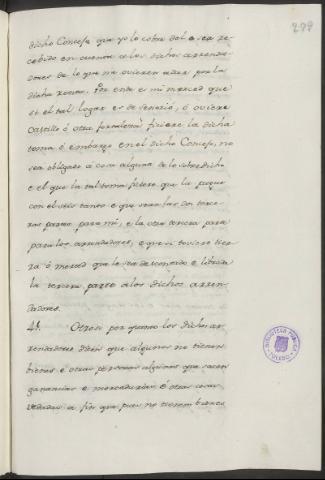 299
dicho Concejo que yo lo cobre del é sea re-
cebido en cuenta a los dichos arrenda-
dores de lo que me ovieren adar por la
dicha renta. Pero ende es mi merced que
si el tal logar es de Señorio, ó oviere
Castillo ó otra fortaleza, é ficiere la dicha
toma ó embargo en el dicho Concejo, no
sea obligado á cosa alguna de lo sobredicho
e el que la tal toma ficiere que la pague
con el otro tanto e que sean las dos terce-
ras partes para mi, e la otra tercera para
para los arrendadores, e que si toviere tier-
ra ó merced que le sea descontado e librada
la tercera parte á los dichos arren-
dadores.
41. Otrosi por quanto los dichos ar-
rendadores dicen que algunos no tienen
bienes é otras personas algunas que sacan
ganancias é mercadurias é otras cosas
vedadas a fin que pues no tienen bienes
BIBLIOTECA PUBLICA
TOLEDO